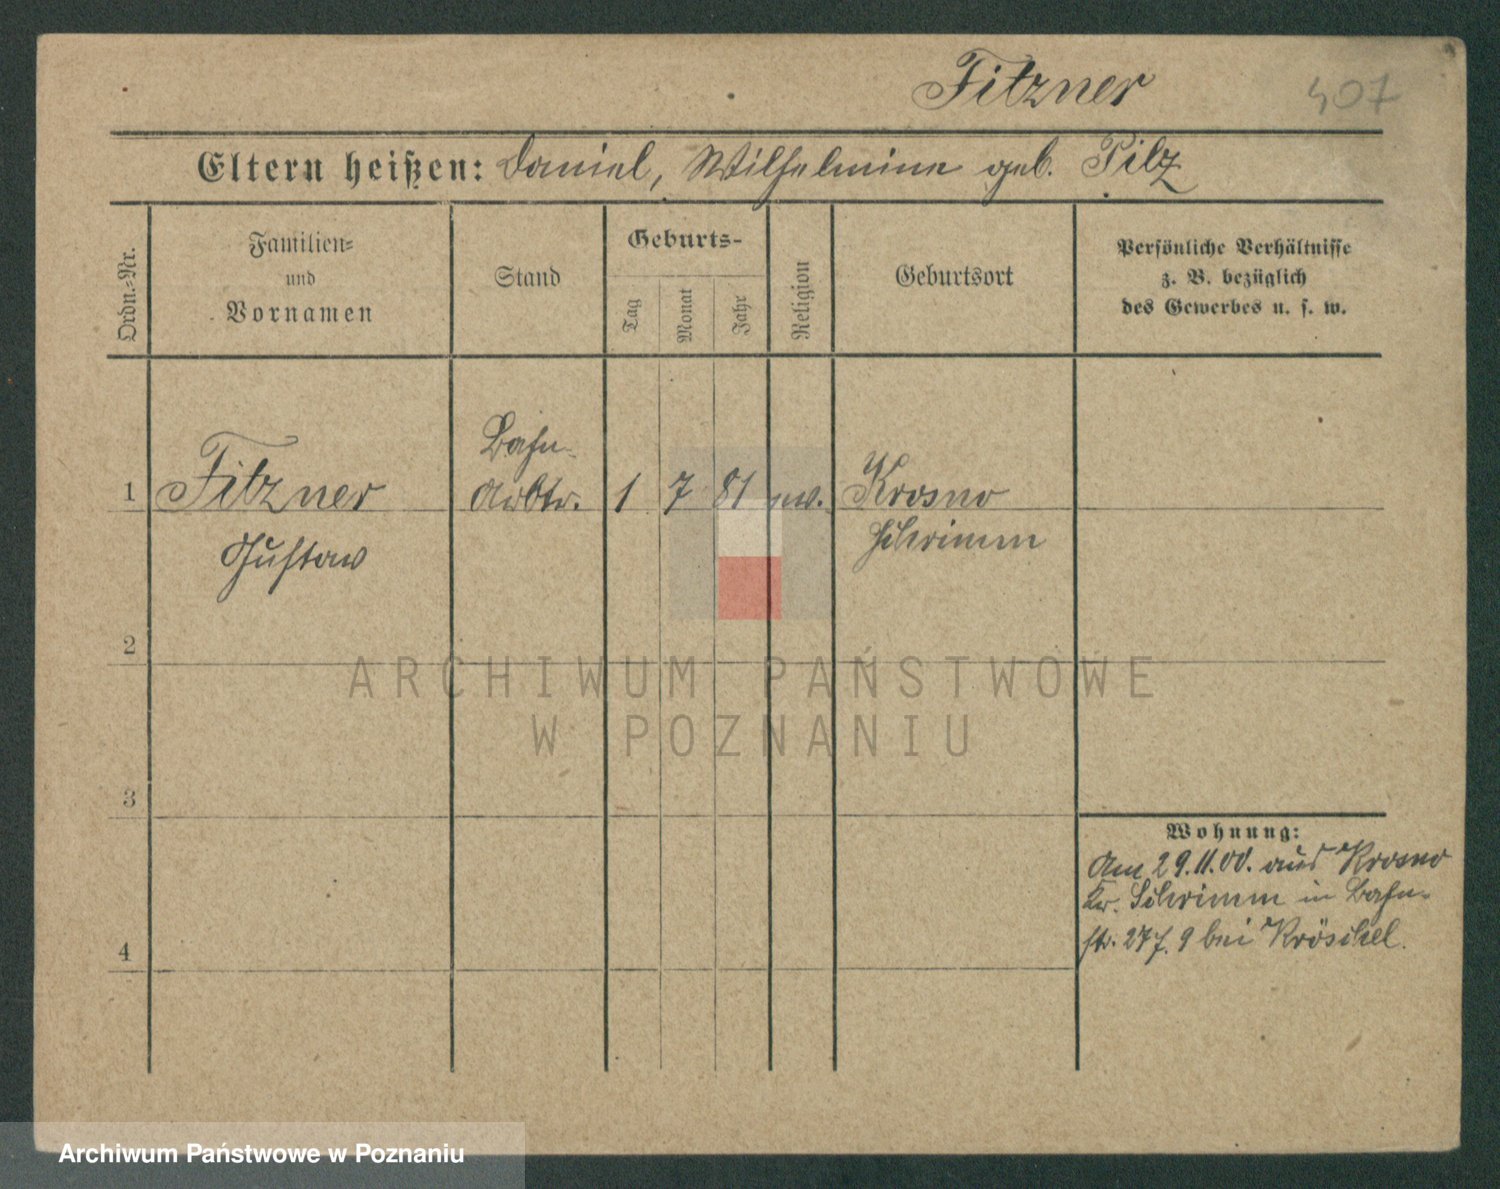 Fitzner 407
Eltern heißen: Daniel, Wilhelmine geb. Pilz
Ordn.-Nr.
Familien-
und
Vornamen
Stand
Geburts-
Tag
Monat
Jahr
Religion
Geburtsort
Persönliche Verhältnisse
z. B. bezüglich
des Gewerbes u. s. w.
Bahn-
1 Fitzner Arbtr. 1 7 81 ev. Krosno
Gustav Schrimm
2
ARCHIWUM PAŃSTWOWE
W POZNANIU
3
Wohnung:
Am 29.11.00. aus Krosno
Kr. Schrimm in Bahn-
str. 27 f. 9 bei Kröschel.
4
Archiwum Państwowe w Poznaniu